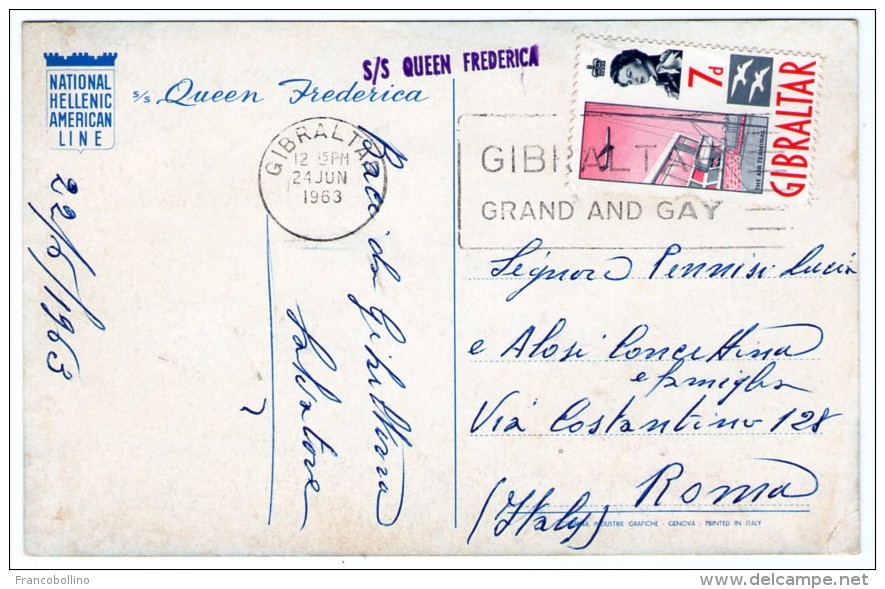 NATIONAL
HELLENIC
AMERICAN
LINE
S/S Queen Frederica
S/S QUEEN FREDERICA
GIBRALTAR
12 15 PM
24 JUN
1963
GIBRALTAR
GRAND AND GAY
7d
GIBRALTAR
THE AIR TERMINAL
22/6/1963
Baci da Gibilterra
Salvatore
Signora Pennisi Lucia
e Alosi Concettina
e famiglia
Via Costantino 128
Roma
(Italy)
INDUSTRIE GRAFICHE - GENOVA - PRINTED IN ITALY
Francobollino
delcampe.net